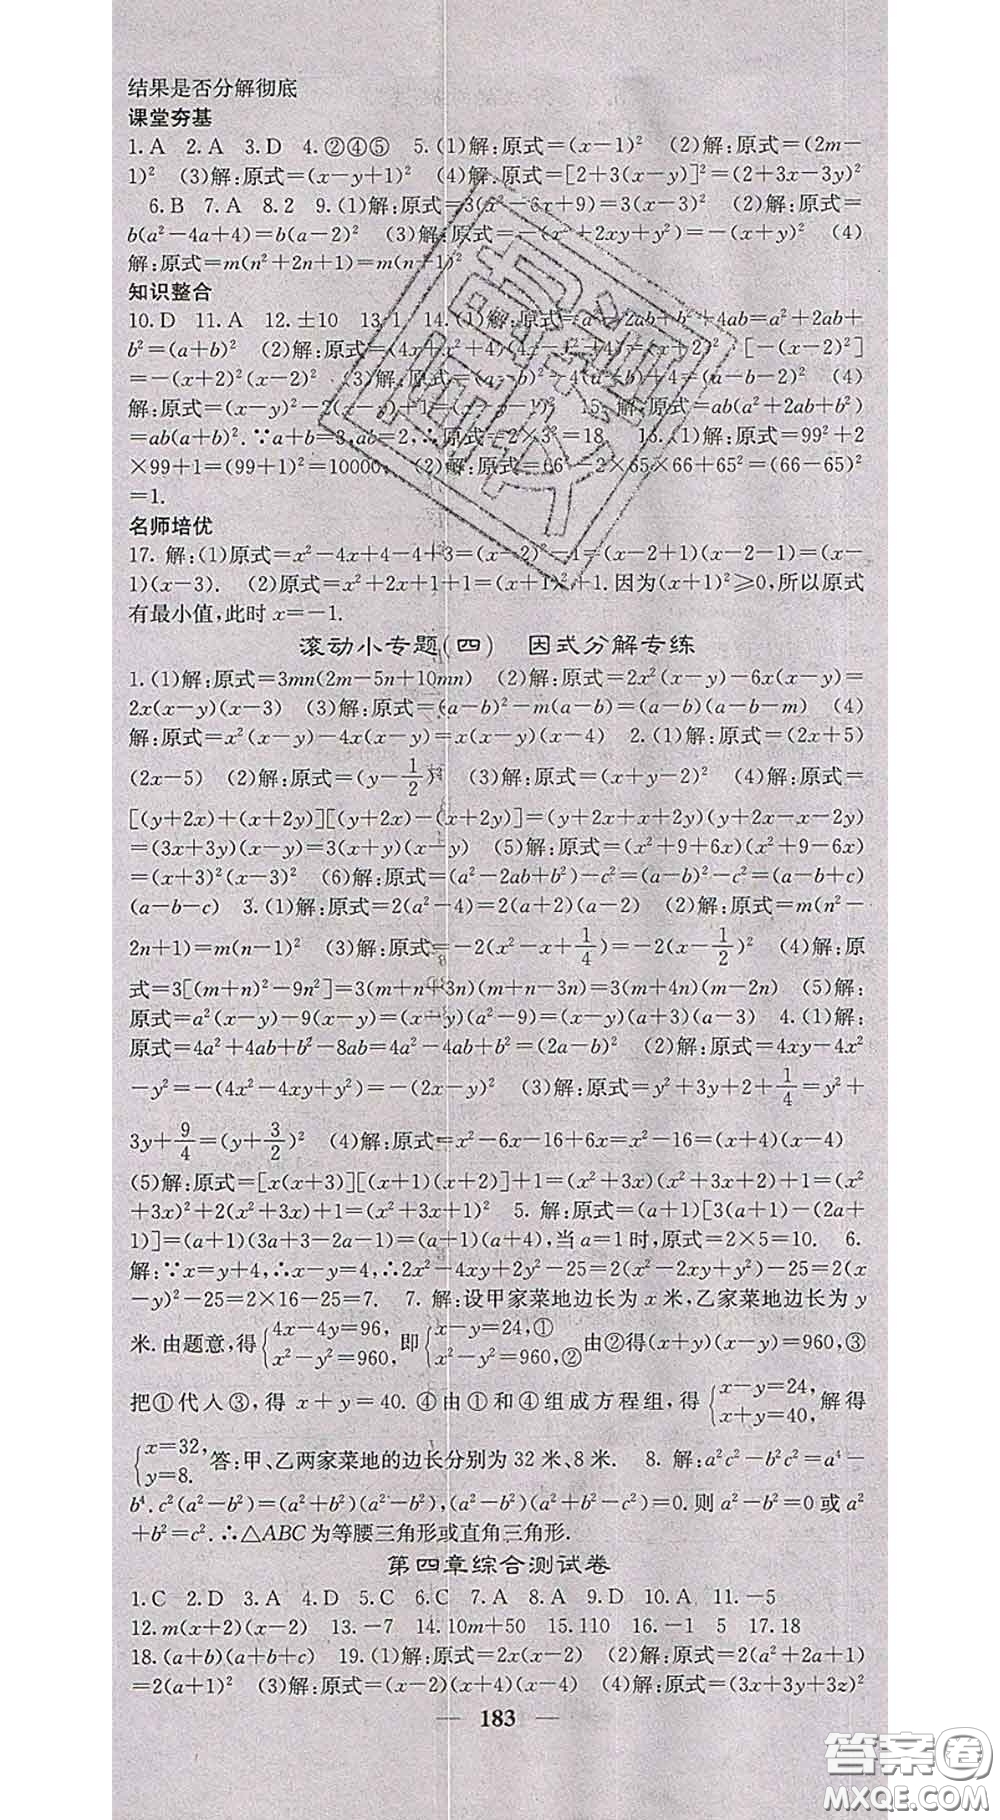 结果是否分解彻底
课堂夯基
1.A 2.A 3.D 4.②④⑤ 5.(1)解:原式=(x-1)² (2)解:原式=(2m-
1)² (3)解:原式=(x-y+1)² (4)解:原式=[2+3(x-y)]²=(2+3x-3y)²
6.B 7.A 8.2 9.(1)解:原式=3(x²-6x+9)=3(x-3)² (2)解:原式=
b(a²-4a+4)=b(a-2)² (3)解:原式=-(x²+2xy+y²)=-(x+y)² (4)
解:原式=m(n²+2n+1)=m(n+1)²
知识整合
10.D 11.A 12.±10 13.1 14.(1)解:原式=a²-2ab+b²+4ab=a²+2ab+
b²=(a+b)² (2)解:原式=(4x+x²+4)(4x-x²-4)=(x+2)²·[-(x-2)²]
=-(x+2)²(x-2)² (3)解:原式=(a-b)²-4(a-b)+4=(a-b-2)² (4)
解:原式=(x-y)²-2(x-y)+1=(x-y-1)² 15.解:原式=ab(a²+2ab+b²)
=ab(a+b)².∵a+b=3,ab=2,∴原式=2×3²=18 16.(1)解:原式=99²+2
×99+1=(99+1)²=10000; (2)解:原式=66²-2×65×66+65²=(66-65)²
=1.
名师培优
17. 解:(1)原式=x²-4x+4-4+3=(x-2)²-1=(x-2+1)(x-2-1)=(x-
1)(x-3). (2)原式=x²+2x+1+1=(x+1)²+1.因为(x+1)²≥0,所以原式
有最小值,此时x=-1.
滚动小专题(四) 因式分解专练
1.(1)解:原式=3mn(2m-5n+10mn) (2)解:原式=2x²(x-y)-6x(x-y)=
2x(x-y)(x-3) (3)解:原式=(a-b)²-m(a-b)=(a-b)(a-b-m) (4)
解:原式=x²(x-y)-4x(x-y)=x(x-y)(x-4) 2.(1)解:原式=(2x+5)
(2x-5) (2)解:原式=(y-1/2)² (3)解:原式=(x+y-2)² (4)解:原式=
[(y+2x)+(x+2y)][(y+2x)-(x+2y)]=(y+2x+x+2y)(y+2x-x-2y)
=(3x+3y)(x-y)=3(x+y)(x-y) (5)解:原式=(x²+9+6x)(x²+9-6x)
=(x+3)²(x-3)² (6)解:原式=(a²-2ab+b²)-c²=(a-b)²-c²=(a-b+c)
(a-b-c) 3.(1)解:原式=2(a²-4)=2(a+2)(a-2) (2)解:原式=m(n²-
2n+1)=m(n-1)² (3)解:原式=-2(x²-x+1/4)=-2(x-1/2)² (4)解:原
式=3[(m+n)²-9n²]=3(m+n+3n)(m+n-3n)=3(m+4n)(m-2n) (5)解:
原式=a²(x-y)-9(x-y)=(x-y)(a²-9)=(x-y)(a+3)(a-3) 4.(1)解:
原式=4a²+4ab+b²-8ab=4a²-4ab+b²=(2a-b)² (2)解:原式=4xy-4x²
-y²=-(4x²-4xy+y²)=-(2x-y)² (3)解:原式=y²+3y+2+1/4=y²+
3y+9/4=(y+3/2)² (4)解:原式=x²-6x-16+6x=x²-16=(x+4)(x-4)
(5)解:原式=[x(x+3)][(x+1)(x+2)]+1=(x²+3x)(x²+3x+2)+1=(x²
+3x)²+2(x²+3x)+1=(x²+3x+1)² 5. 解:原式=(a+1)[3(a+1)-(2a-
1)]=(a+1)(3a+3-2a-1)=(a+1)(a+4),当a=1时,原式=2×5=10. 6.
解:∵x=y+4,∴x-y=4,∴2x²-4xy+2y²-25=2(x²-2xy+y²)-25=2(x
-y)²-25=2×16-25=7. 7. 解:设甲家菜地边长为x米,乙家菜地边长为y
米.由题意,得{4x-4y=96, x²-y²=960, 即{x-y=24,① x²-y²=960,② 由②得(x+y)(x-y)=960,③
把①代入③,得 x+y=40. ④由①和④组成方程组,得 {x-y=24, x+y=40, 解得
{x=32, y=8. 答:甲、乙两家菜地的边长分别为32米、8米. 8. 解:a²c²-b²c²=a⁴-
b⁴.c²(a²-b²)=(a²+b²)(a²-b²),(a²-b²)(a²+b²-c²)=0.则a²-b²=0或a²
+b²=c².∴△ABC为等腰三角形或直角三角形.
第四章综合测试卷
1.C 2.D 3.A 4.D 5.D 6.C 7.A 8.A 9.D 10.A 11.-5
12.m(x+2)(x-2) 13.-7 14.10m+50 15.110 16.-1 5 17.18
18.(a+b)(a+b+c) 19.(1)解:原式=2x(x-2) (2)解:原式=2(a²+2a+1)
=2(a+1)² (3)解:原式=(x-2)(x+4)(x-4) (4)解:原式=(3x+3y+3z)²
— 183 —
答案圈
MXQE.COM